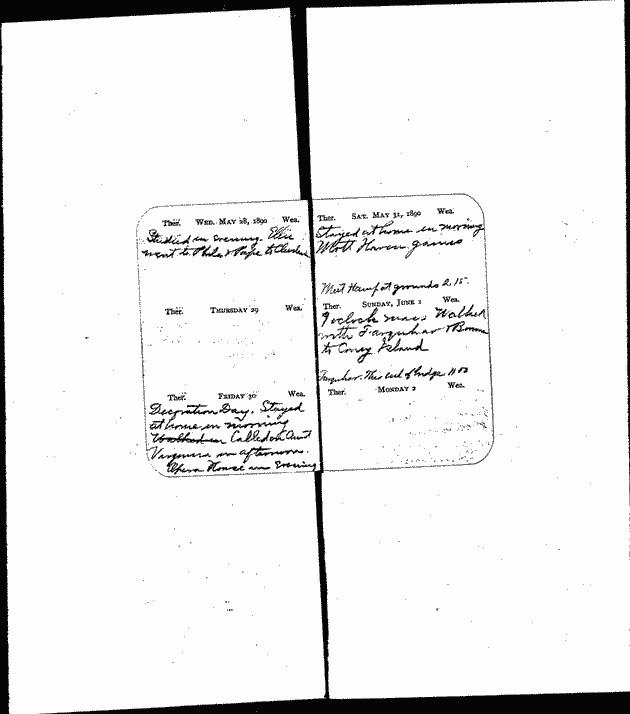 Ther. WED. MAY 28, 1890 Wea.
Studied in evening. Ellie
went to Phila & Papa to Cleveland
Ther. THURSDAY 29 Wea.
Ther. FRIDAY 30 Wea.
Decoration Day. Stayed
at home in morning
Walked in Called on Aunt
Virginia in afternoon.
Opera House in Evening
Ther. SAT. MAY 31, 1890 Wea.
Stayed at home in morning
Mott Haven games
Meet Hamp at grounds 2.15.
Ther. SUNDAY, JUNE 1 Wea.
9 oclock mass. Walked
with Farquhar &
to Coney Island
Farquhar. This end of bridge 11 00
Ther. MONDAY 2 Wea.